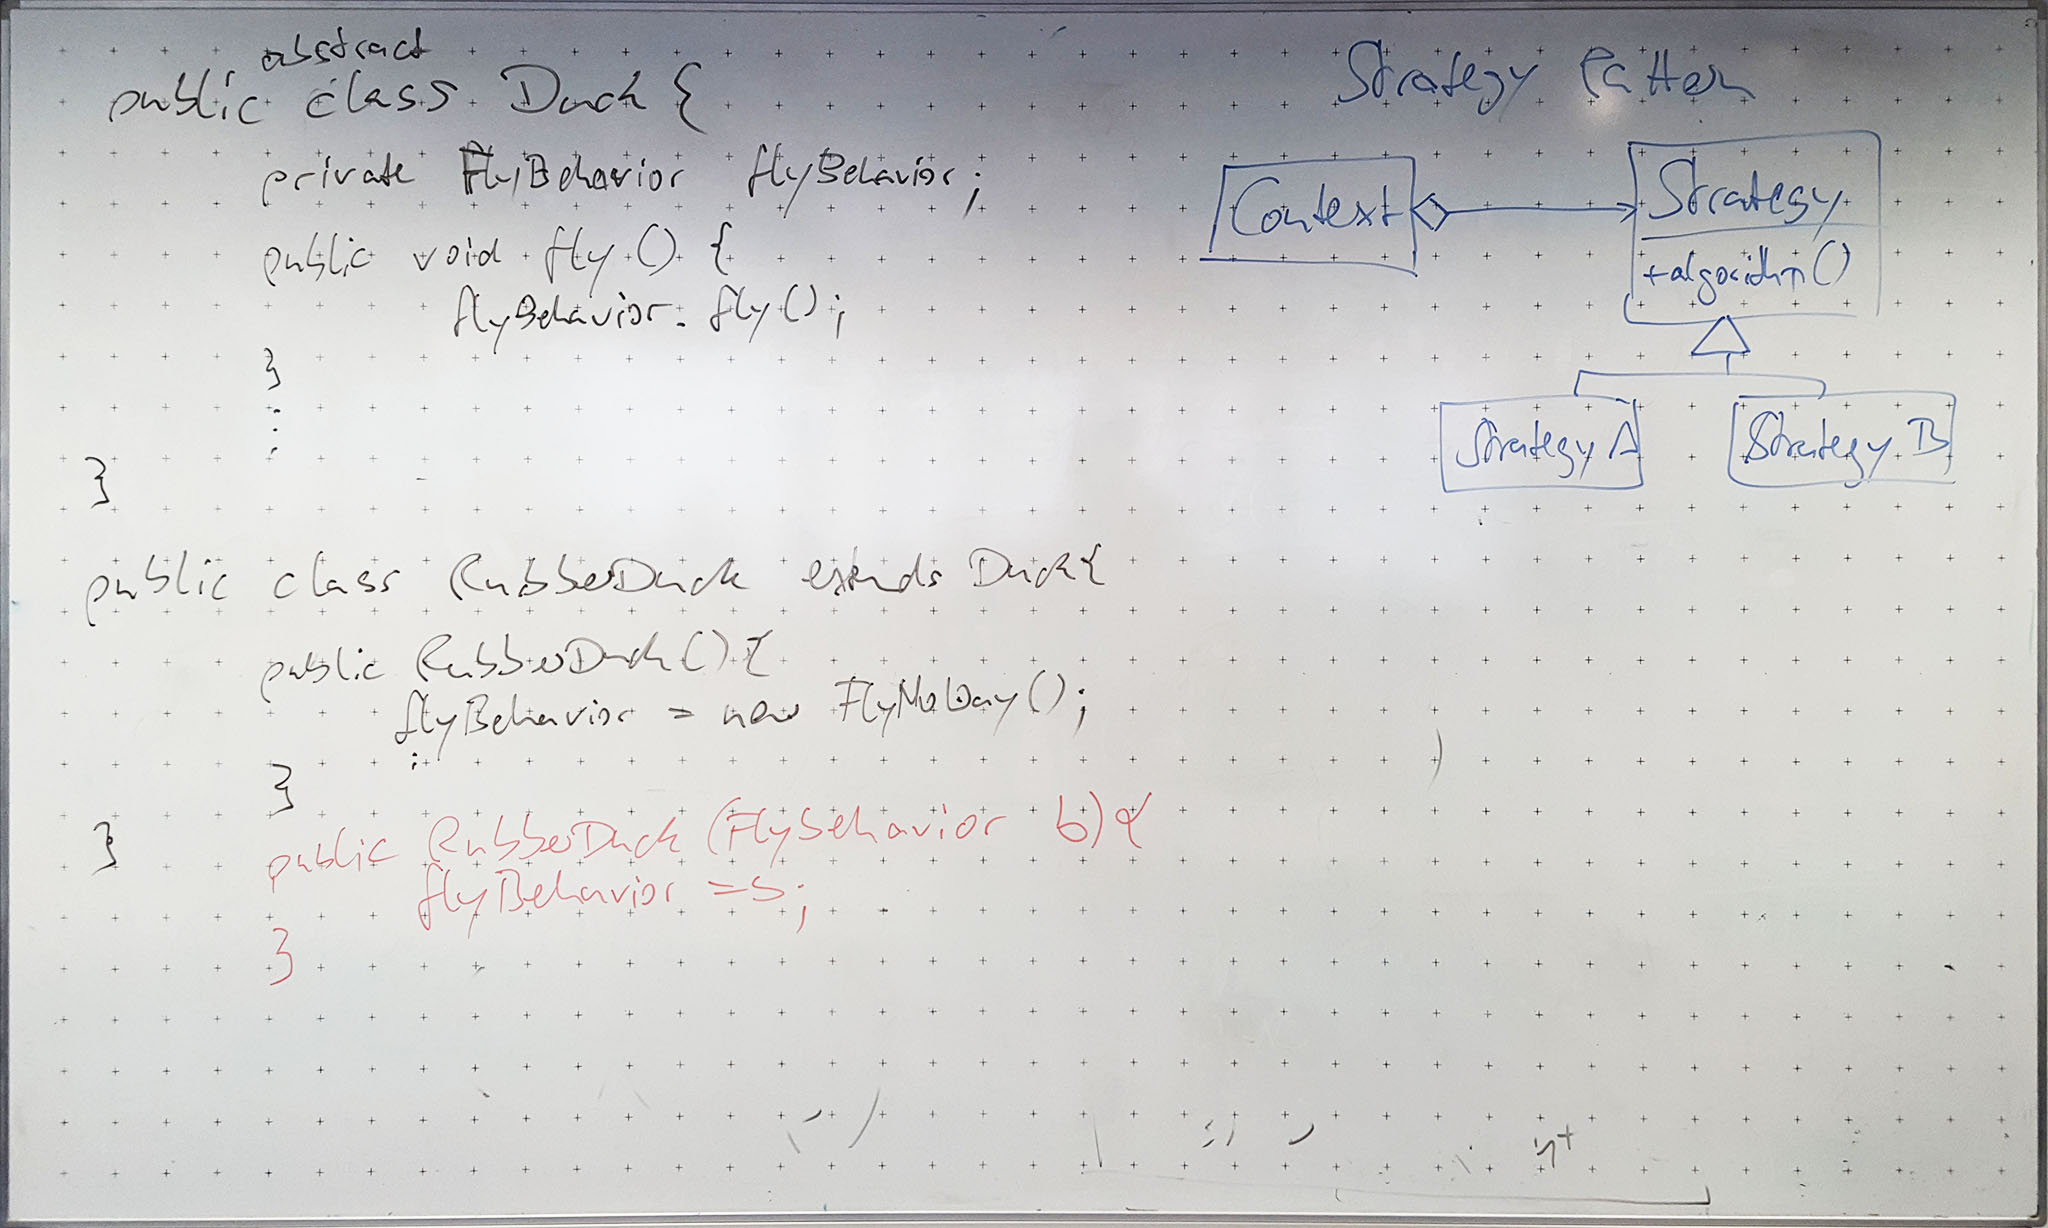 abstract
public class Duck {
private FlyBehavior flyBehavior;
public void fly() {
flyBehavior.fly();
}
⋮
}
public class RubberDuck extends Duck{
public RubberDuck(){
flyBehavior = new FlyNoWay();
:
}
}
public RubberDuck(FlyBehavior b){
flyBehavior =b;
}
Strategy Pattern
Context
Strategy
+algorithm()
Strategy A
Strategy B